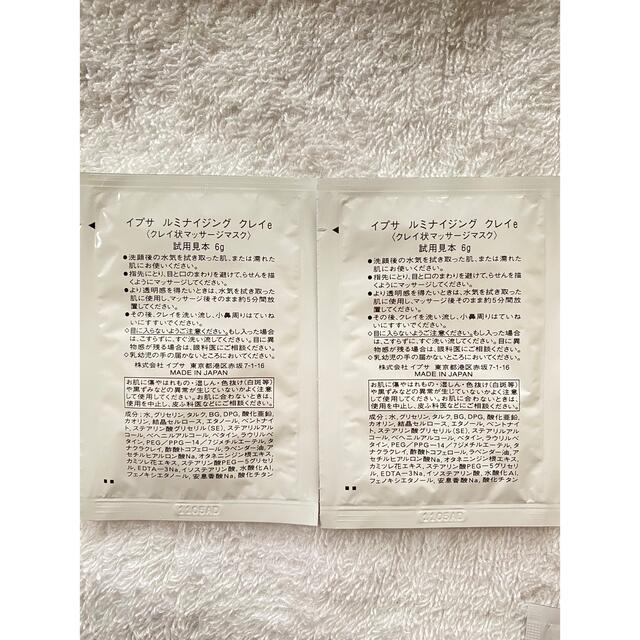 イプサ ルミナイジング クレイe
〈クレイ状マッサージマスク〉
試用見本 6g
●洗顔後の水気を拭き取った肌、または濡れた
肌にお使いください。
●指先にとり、目と口のまわりを避けて、らせんを描
くようにマッサージしてください。
●より透明感を得たいときは、水気を拭き取った
肌に使用し、マッサージ後そのまま約5分間放
置してください。
●その後、クレイを洗い流し、小鼻周りはていね
いにすすいでください。
◇目に入らないようご注意ください。もし入った場合
は、こすらずに、すぐ洗い流してください。目に異
物感が残る場合は、眼科医にご相談ください。
◇乳幼児の手の届かないところにおいてください。
株式会社 イプサ 東京都港区赤坂7-1-16
MADE IN JAPAN
お肌に傷やはれもの・湿しん・色抜け(白斑等)
や黒ずみなどの異常が生じていないかよく注意
して使用してください。お肌に合わないときは、
使用を中止し、皮ふ科医などにご相談ください。
成分:水,グリセリン,タルク,BG,DPG,酸化亜鉛,
カオリン,結晶セルロース,エタノール,ベントナイ
ト,ステアリン酸グリセリル(SE),ステアリルアル
コール,ベヘニルアルコール,ベタイン,ラウリルベ
タイン,PEG/PPG-14/7ジメチルエーテル,タ
ナクラクレイ,酢酸トコフェロール,ラベンダー油,ア
セチルヒアルロン酸Na,オタネニンジン根エキス,
カミツレ花エキス,ステアリン酸PEG-5グリセリ
ル,EDTA-3Na,イソステアリン酸,水酸化Al,
フェノキシエタノール,安息香酸Na,酸化チタン
1105AD
イプサ ルミナイジング クレイe
〈クレイ状マッサージマスク〉
試用見本 6g
●洗顔後の水気を拭き取った肌、または濡れた
肌にお使いください。
●指先にとり、目と口のまわりを避けて、らせんを描
くようにマッサージしてください。
●より透明感を得たいときは、水気を拭き取った
肌に使用し、マッサージ後そのまま約5分間放
置してください。
●その後、クレイを洗い流し、小鼻周りはていね
いにすすいでください。
◇目に入らないようご注意ください。もし入った場合
は、こすらずに、すぐ洗い流してください。目に異
物感が残る場合は、眼科医にご相談ください。
◇乳幼児の手の届かないところにおいてください。
株式会社 イプサ 東京都港区赤坂7-1-16
MADE IN JAPAN
お肌に傷やはれもの・湿しん・色抜け(白斑等)
や黒ずみなどの異常が生じていないかよく注意
して使用してください。お肌に合わないときは、
使用を中止し、皮ふ科医などにご相談ください。
成分:水,グリセリン,タルク,BG,DPG,酸化亜鉛,
カオリン,結晶セルロース,エタノール,ベントナイ
ト,ステアリン酸グリセリル(SE),ステアリルアル
コール,ベヘニルアルコール,ベタイン,ラウリルベ
タイン,PEG/PPG-14/7ジメチルエーテル,タ
ナクラクレイ,酢酸トコフェロール,ラベンダー油,ア
セチルヒアルロン酸Na,オタネニンジン根エキス,
カミツレ花エキス,ステアリン酸PEG-5グリセリ
ル,EDTA-3Na,イソステアリン酸,水酸化Al,
フェノキシエタノール,安息香酸Na,酸化チタン
1105AD